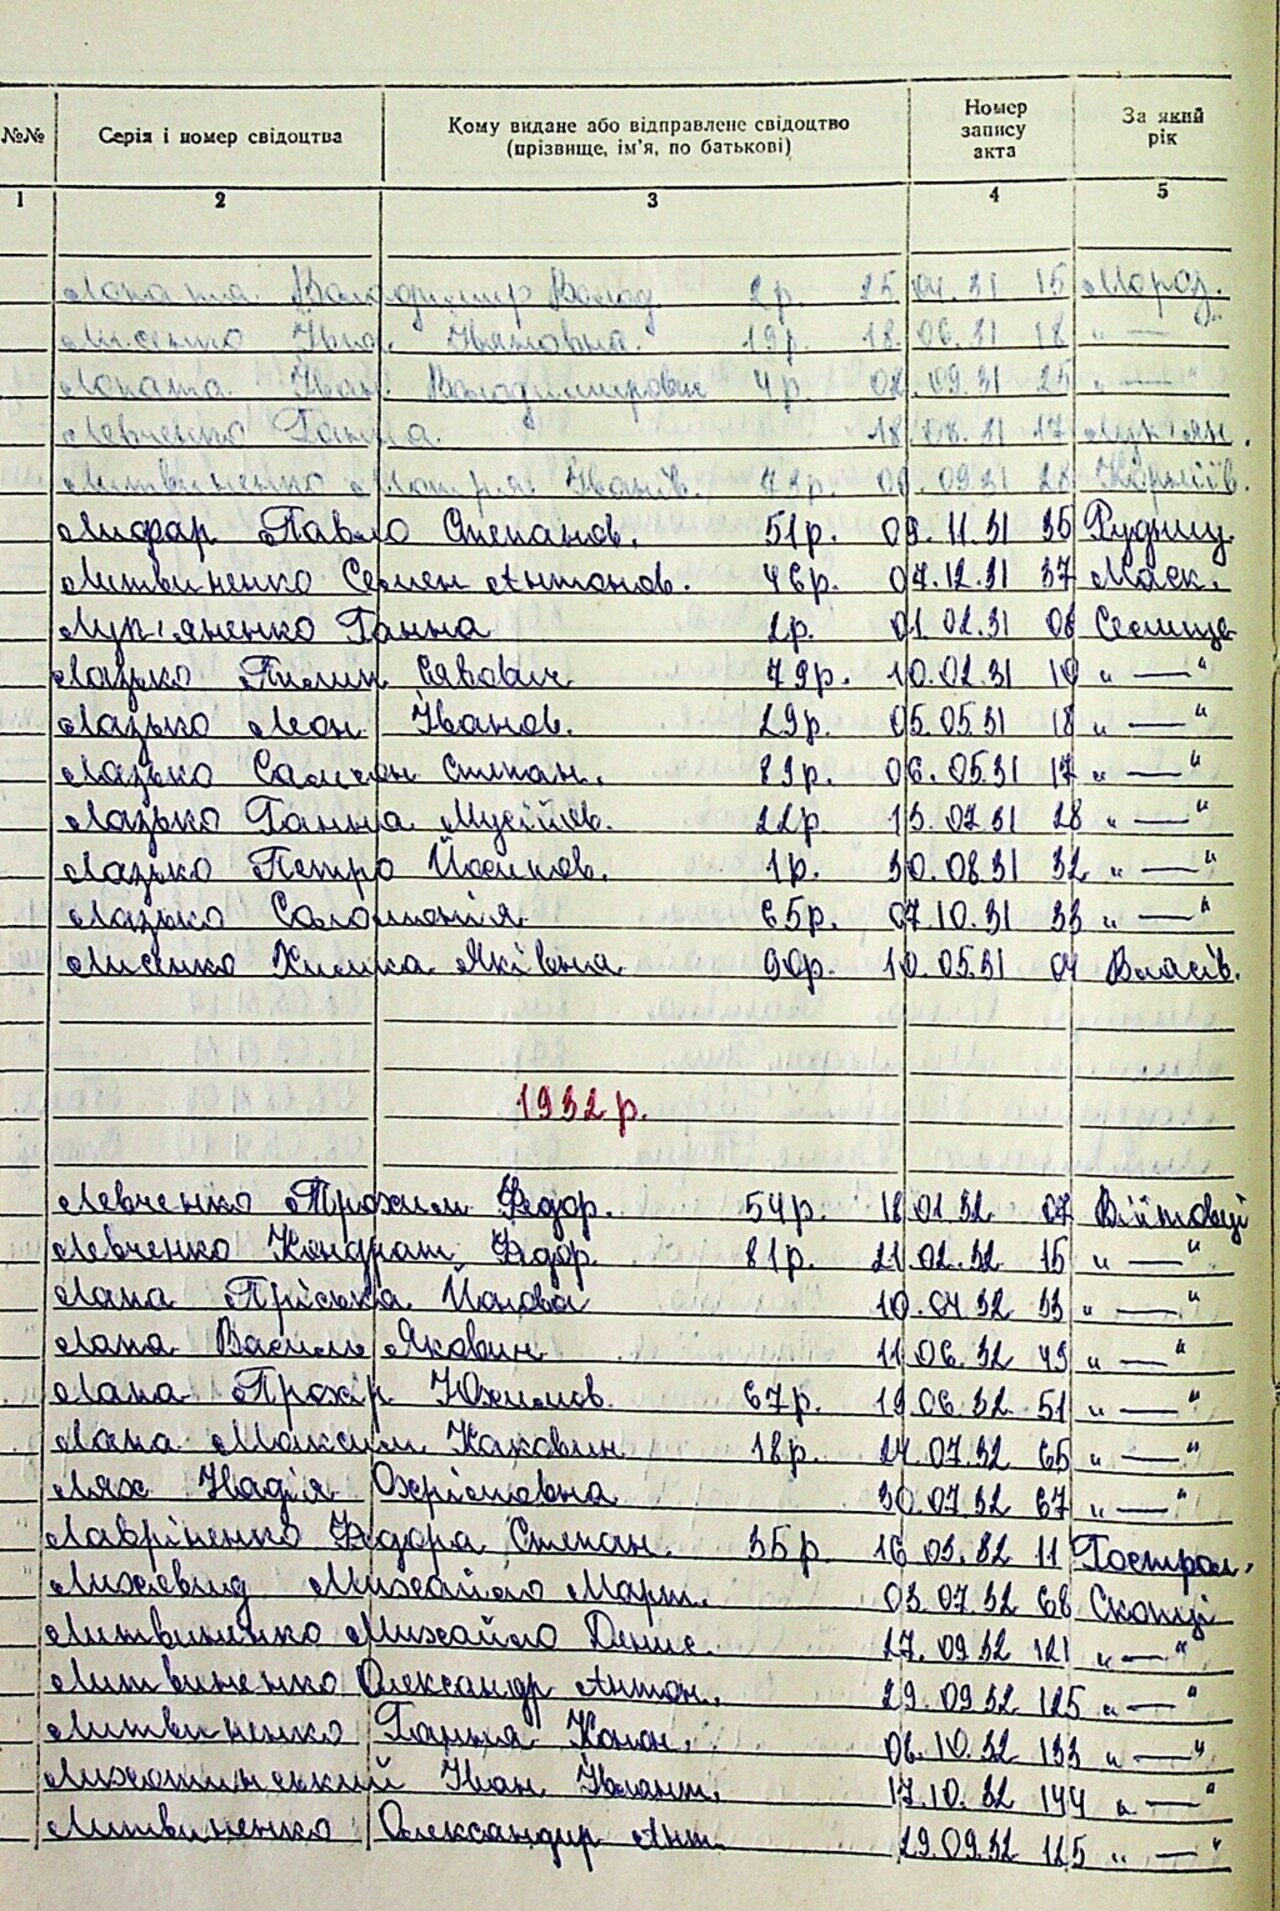 №№ Серія і номер свідоцтва Кому видане або відправлене свідоцтво (прізвище, ім'я, по батькові) Номер запису акта За який рік
1 2 3 4 5
Лопата Володимир Волод. 2р. 25.04.31 15 Мороз.
Лисенко Івановна. 19р. 18.06.31 18 „—"
Лопата Іван Володимирович 4р. 02.09.31 25 „—"
Левченко Ганна. 18.08.31 17 Лук'ян.
Литвиненко Мотря Іванів. 73р. 09.31 Корніїв.
Лифар Павло Степанов. 51р. 09.11.31 35 Рудниц.
Литвиненко Семен Антонов. 46р. 07.12.31 37 Маск.
Лук'яненко Ганна 2р. 01.02.31 06 Селище
Лазько Пилип Савович 79р. 10.02.31 10 „—"
Лазько Леон Іванов. 29р. 05.05.31 18 „—"
Лазько Самсон Степан. 89р. 06.05.31 17 „—"
Лазько Ганна Мусіїв. 22р. 13.07.31 28 „—"
Лазько Петро Йосипов. 1р. 30.08.31 32 „—"
Лазько Соломонія 65р. 07.10.31 33 „—"
Лисенко Химка Яківна 90р. 10.05.31 04 Власів.
1932 р.
Левченко Трохим Федор. 54р. 18.01.32 07 Війтовці
Левченко Кондрат Федор. 81р. 21.02.32 15 „—"
Лапа Пріська Йонова 10.04.32 33 „—"
Лапа Василь Якович 11.06.32 49 „—"
Лапа Прохір Юхимов. 67р. 19.06.32 51 „—"
Лапа Максим 18р. 24.07.32 65 „—"
Лях Надія Охрімовна 30.07.32 67 „—"
Лавріненко Федора Степан. 35р. 16.03.32 11 Гострол.
Михайло Март. 03.07.32 68 Скопці
Литвиненко Михайло Денис. 27.09.32 121 „—"
Литвиненко Олександр Антон. 29.09.32 125 „—"
Литвиненко Ганна Конон. 06.10.32 133 „—"
Іван 17.10.32 144 „—"
Литвиненко Олександир Ант. 29.09.32 125 „—"